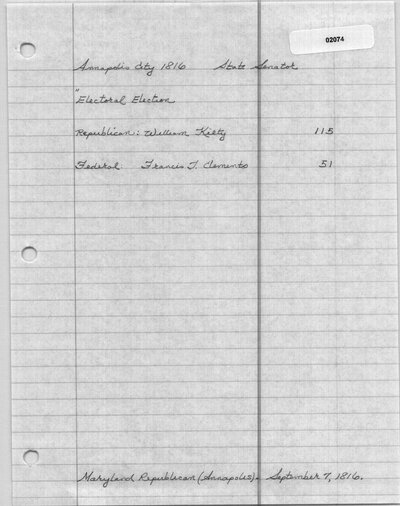 02074
Annapolis City 1816 State Senator
"Electoral Election
Republican: William Kilty 115
Federal: Francis T. Clements 51
Maryland Republican (Annapolis). September 7, 1816.